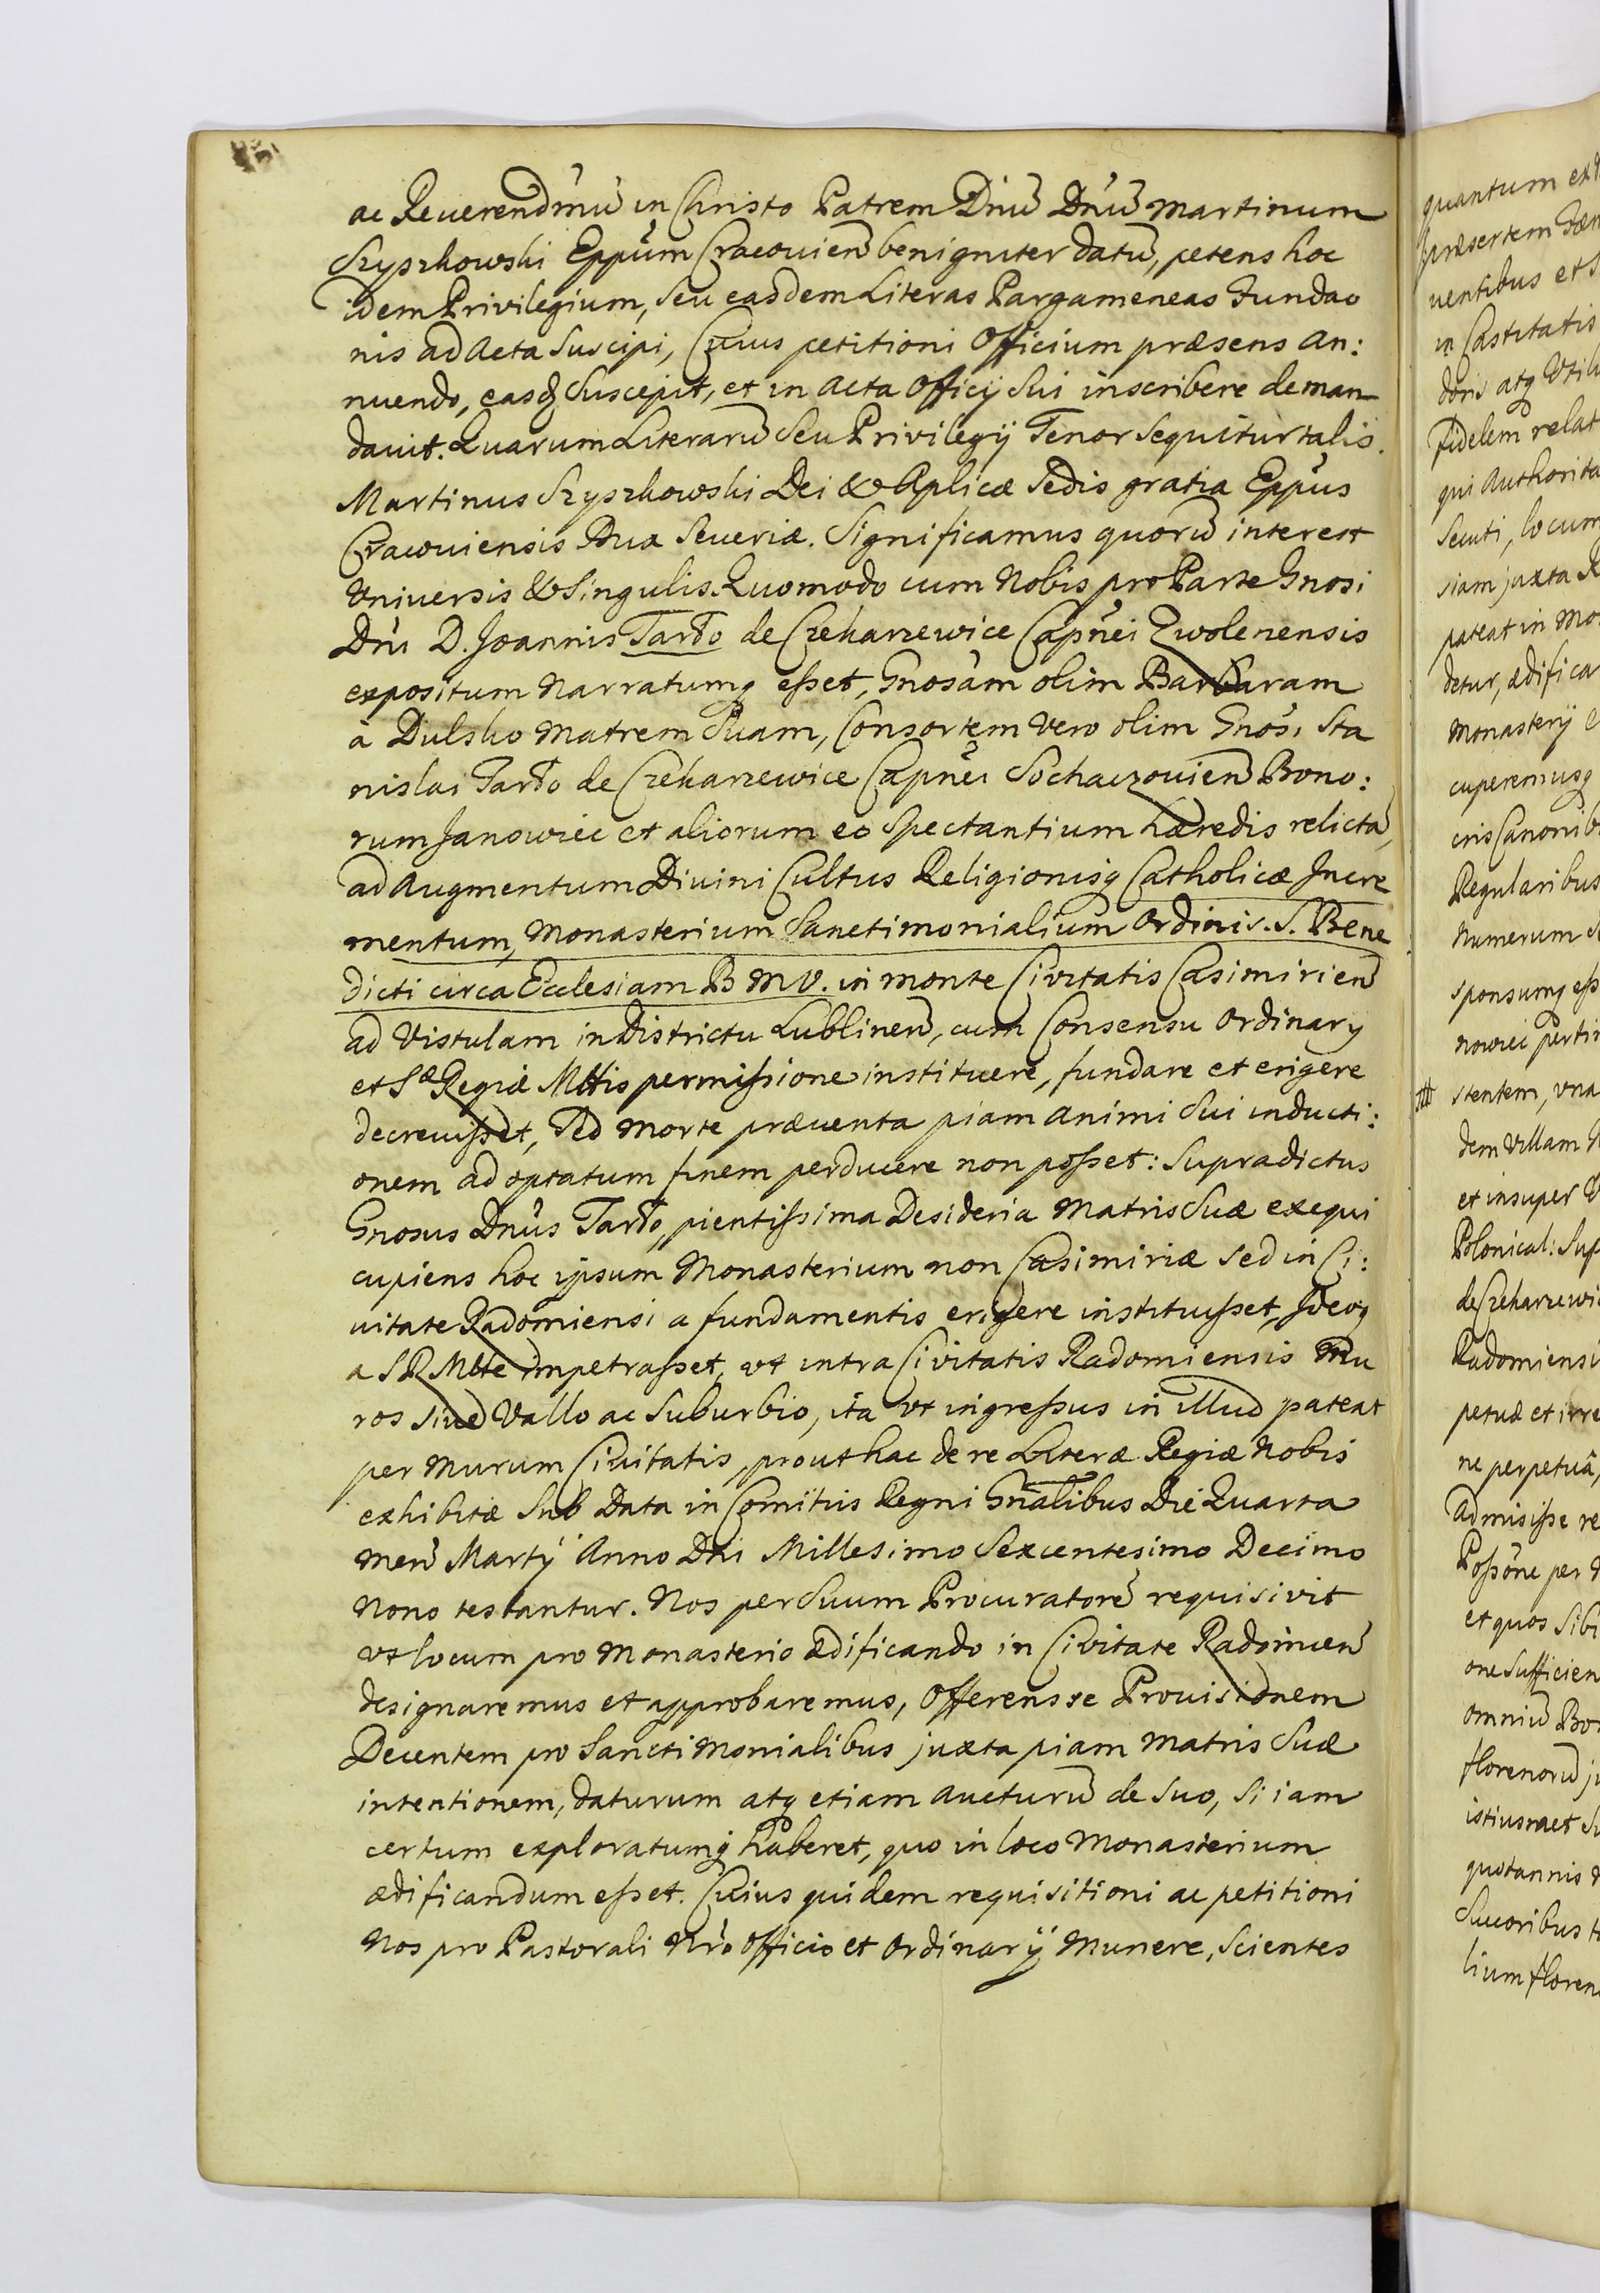 ac Reuerendmũ in Christo Patrem Dnũ Dnũ Martinum
Szyszkowski Eppũm Cracouien̄ benigniter datũ, petens hoc
idem Privilegium, seu easdem Literas Pargameneas Fundao
nis ad Acta Suscipi, Cuius petitioni Officium præsens An:
nuendo, easq; Suscepit, et in Acta Officij Sui inscribere deman
davit. Quarum Literarũ Seu Privilegij Tenor sequitur talis.
Martinus Szyszkowski Dei & Aplicæ Sedis gratia Eppũs
Cracouiensis Dux Seueriæ. Significamus quorũ interest
Vniuersis & Singulis. Quomodo cum Nobis pro Parte Gnosi
Dni D. Joannis Tarło de Czekarzewice Capnei Zwolenensis
expositum Narratumq esset, Gnosam olim Barbaram
à Dulsko Matrem Suam, Consortem Vero olim Gnosi Sta
nislai Tarło de Czekarzewice Capnei Sochaczouien̄ Bono:
rum Janowiec et aliorum eo Spectantium hæredis relictã,
ad Augmentum Divini Cultus Religionisq Catholicæ Incre
mentum, Monasterium Sanctimonialium Ordinis. S. Bene
dicti circa Ecclesiam B M V. in monte Civitatis Casimirien̄
ad Vistulam in Districtu Lublinen̄, cum Consensu Ordinary
et Sa Regiæ Mttis permissione instituere, fundare et erigere
decreuisset, Sed Morte præuenta piam Animi Sui inducti:
onem ad optatum finem perducere non posset: Supradictus
Gnosus Dnũs Tarło, pientissima Desideria Matris Suæ exequi
cupiens hoc ipsum Monasterium non Casimiriæ Sed in Ci:
uitate Radomiensi a fundamentis erigere instituisset, Ideoq
a S R Mtte impetrasset, vt intra Civitatis Radomiensis Mu
ros siue Vallo ac Suburbio, ita vt ingressus in illud pateat
per Murum Civitatis, prout hac de re Literæ Regiæ Nobis
exhibitæ Sub Data in Comitiis Regni Gnãlibus Die Quarta
Men̄ Martij Anno Dni Millesimo Sexcentesimo Decimo
Nono testantur. Nos per Suum Procuratorē requisivit
vt locum pro Monasterio ædificando in Civitate Radomien̄
designaremus et approbaremus, Offerens se Provisionem
Decentem pro Sanctimonialibus juxta piam Matris Suæ
intentionem, daturum atq etiam Aucturũ de Suo, Si iam
certum exploratumq haberet, quo in loco Monasterium
ædificandum esset. Cuius quidem requisitioni ac petitioni
Nos pro Pastorali Nrõ Officio et Ordinarij Munere, Scientes
quantum
præsertem
uentibus et
in Castitatis
atq
fidelem relat
qui Authorita
Secuti, locum
siam juxta R
pateat in Mo
detur, ædifica
Monasterij
cuperemusq
cris Canonib
Regularibus
Numerum
sponsumq ess
nowiec perti
stentem, vna
dem Villam
et insuper
Polonical: Sup
de Czekarzewi
Radomiensi
petuæ et irre
ne perpetuâ,
Admisisse re
Possõne per
et quos Sibi
one Sufficien
omniũ Bo
florenorũ ju
istiusmet Su
quotannis
Sucoribus
lium floren